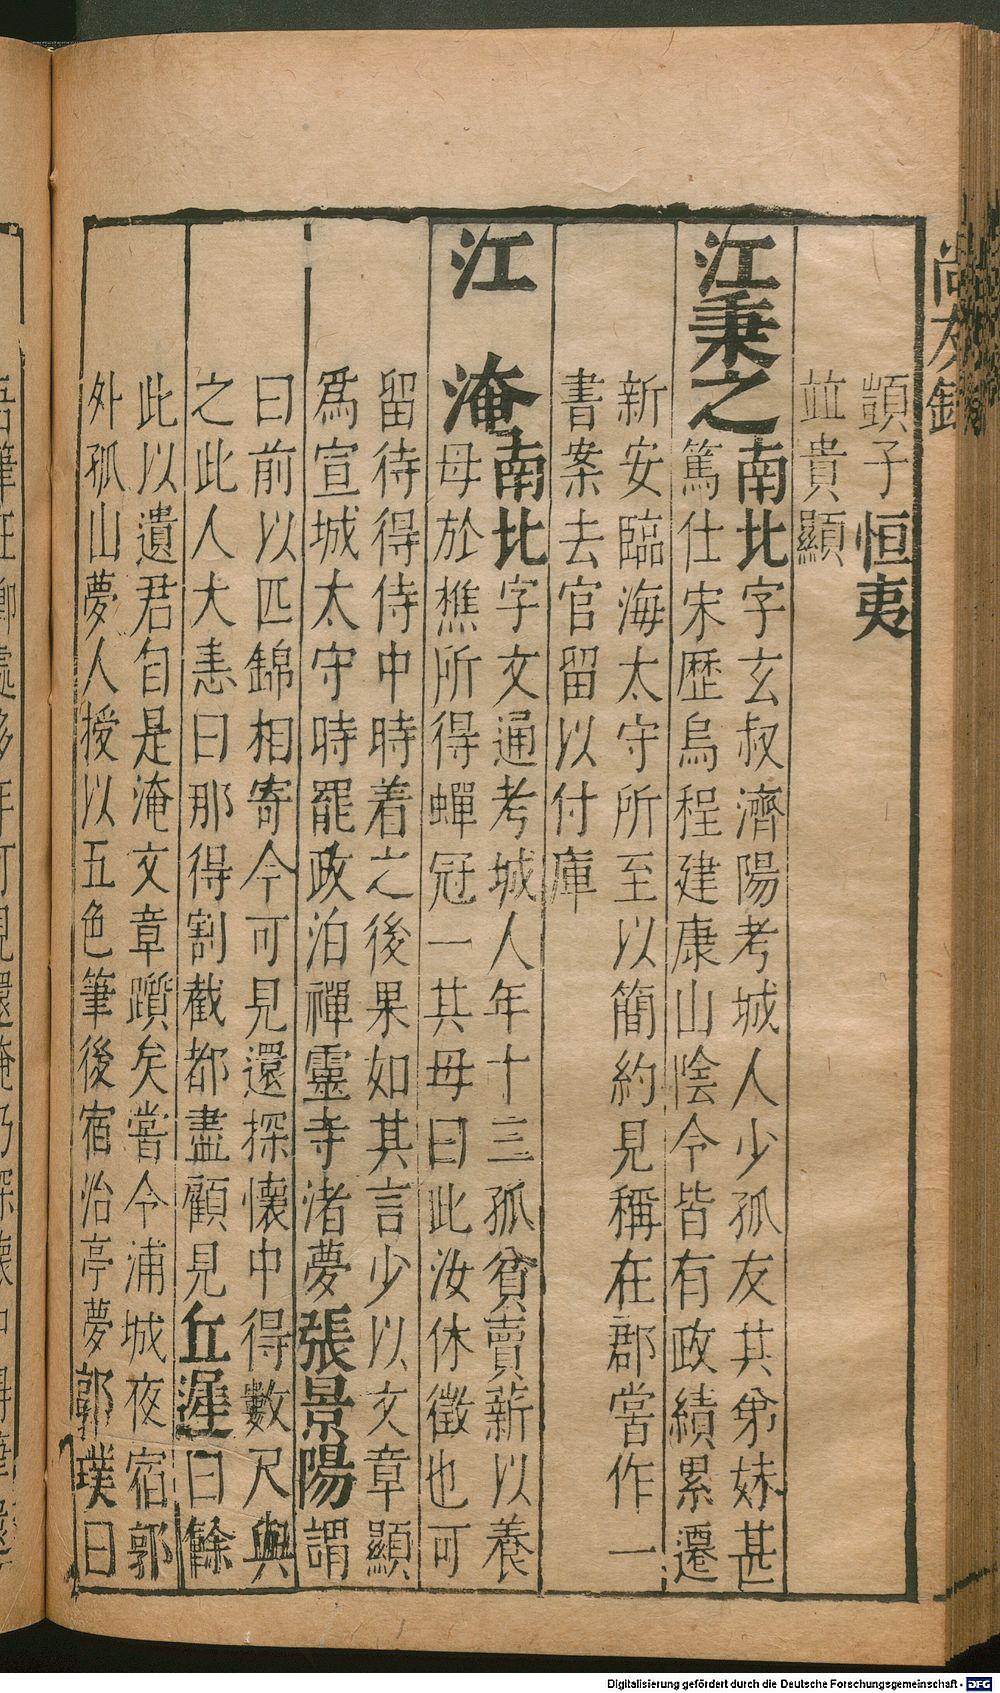 尚友錄
顗子恒夷
並貴顯
江秉之南北字玄叔濟陽考城人少孤友其弟妹甚
篤仕宋歷烏程建康山陰令皆有政績累遷
新安臨海太守所至以簡約見稱在郡嘗作一
書案去官留以付庫
江淹南北字文通考城人年十三孤貧賣薪以養
母於樵所得蟬冠一其母曰此汝休徵也可
留待得侍中時着之後果如其言少以文章顯
爲宣城太守時罷政泊禪靈寺渚夢張景陽謂
曰前以匹錦相寄今可見還探懷中得數尺與
之此人大恚曰那得割截都盡顧見丘遲曰餘
此以遺君自是淹文章躓矣嘗令浦城夜宿郭
外孤山夢人授以五色筆後宿治亭夢郭璞曰
Digitalisierung gefördert durch die Deutsche Forschungsgemeinschaft - DFG